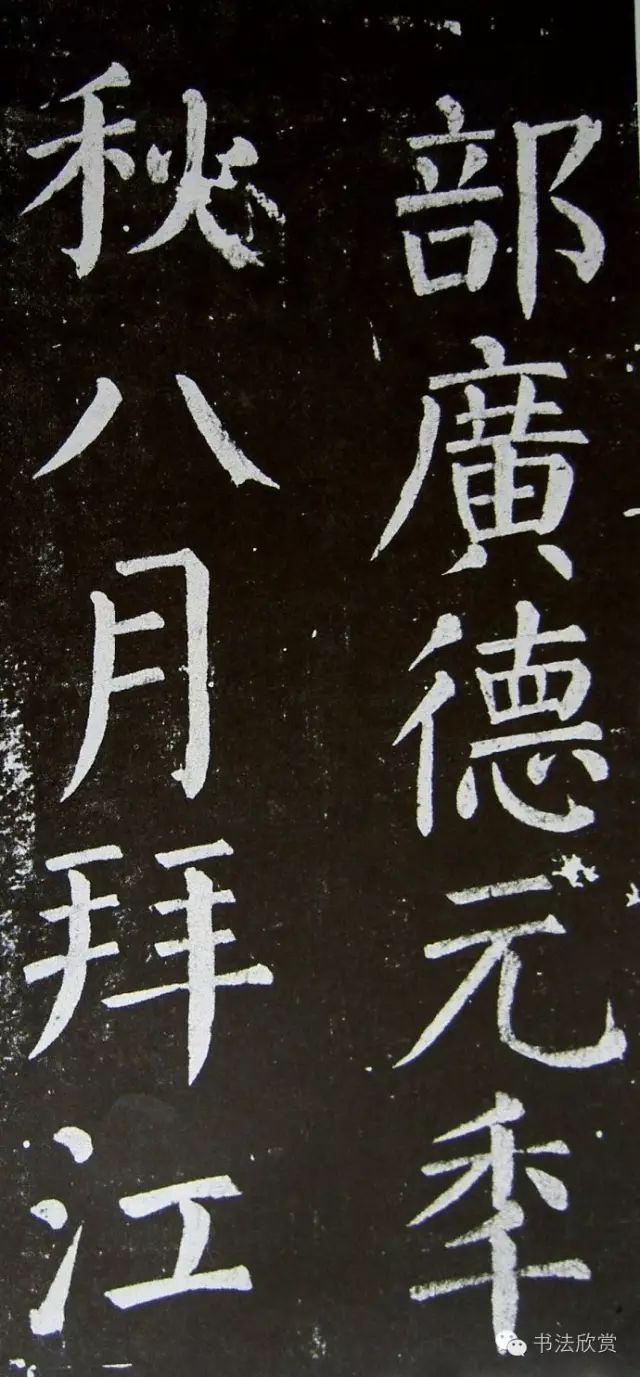 部廣德元秊
秋八月拜江
书法欣赏